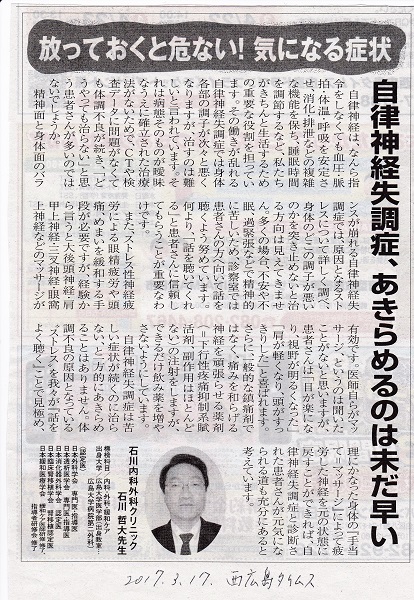 放っておくと危ない！気になる症状
自律神経失調症、あきらめるのは未だ早い
自律神経は、なんら指
令をしなくても血圧・脈
拍・体温・呼吸を安定さ
せ、消化・排泄などの複雑
な機能を保ち、睡眠時間
を調節するなど、私たち
がきちんと生活するため
の重要な役割を担ってい
ます。その働きが乱れる
自律神経失調症では身体
各部の調子が次々と悪く
なりますが、治すのは難
しいと言われています。そ
れは病態そのものが曖昧
なうえに確立された治療
法がないためで、CTや検
査データに問題がなくて
も体調不良が続き、「ど
うやっても治らない」と思
う患者さんが多いのでは
ないでしょうか。
精神面と身体面のバラ
ンスが崩れる自律神経失
調症では原因となるスト
レスについて詳しく調べ、
身体のどこの調子が悪い
のかを突き止めないと治
る方向は見えてきませ
ん。多くの場合、不安や不
眠、過緊張などで精神的
に苦しいため、診察室では
患者さんの方へ向いて話を
聴くよう努めています。
何より、「話を聴いてくれ
る」と患者さんに信頼し
てもらうことが重要なわ
けです。
また、ストレス性神経疲
労による眼精疲労や頭
痛、めまいを緩和する手
段が必要ですが、経験か
ら言うと大後頭神経・肩
甲上神経・三叉神経・眼窩
上神経などのマッサージが
有効です。「医師自らがマッ
サージ」というのは聞いた
ことがないと思いますが、
患者さんは「目が楽にな
り、視野が明るくなった」
「肩が軽くなり、頭がすっ
きりした」と喜ばれます。
さらに一般的な鎮痛剤で
はなく、痛みを和らげる
神経を頑張らせる薬剤
下行性疼痛抑制系賦
活剤、副作用はほとんど
ない)の注射をしますが、
できるだけ飲み薬を増や
さないようにしています。
自律神経失調症は苦
しい症状が続くのに治ら
ない、と一方的にあきらめ
ることはありません。体
調不良の原因となっている
“ストレス”を我々が「話を
よく聴く」ことで見極め、
理にかなった身体の「手当
て＝マッサージ」によって疲
労した神経を元の状態に
戻すことができれば、自
律神経失調症と診断さ
れた患者さんが元気にな
られる道も充分にあると
考えています。
石川内科外科クリニック
石川 哲大先生
標榜科目/内科・外科・緩和ケア
出身大学/広島大学医学部
広島大学病院第二外科
【認定医】
日本外科学会 専門医・指導医
日本透析医学会 専門医・指導医
日本消化器外科学会 認定医
日本臨床腎移植学会 腎移植認定医
日本緩和医療学会 緩和ケア医師研修
指導者研修会 修了
2017.3.17. 西広島タイムス